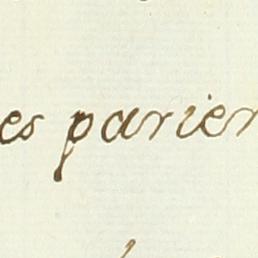 es parier